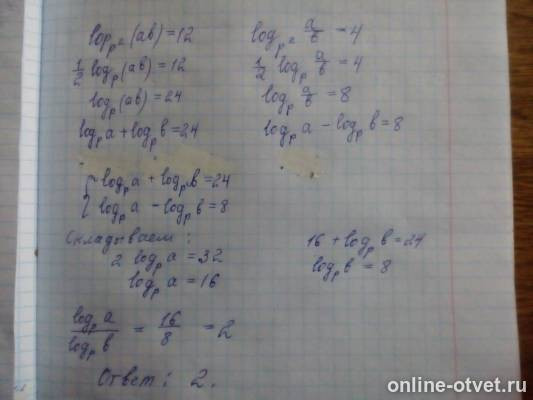 log_{p²}(ab)=12
½ log_p(ab)=12
log_p(ab)=24
log_p a + log_p b = 24
log_{p²} a/b = 4
½ log_p a/b = 4
log_p a/b = 8
log_p a - log_p b = 8
{ log_p a + log_p b = 24
{ log_p a - log_p b = 8
Складываем:
2 log_p a = 32
log_p a = 16
16 + log_p b = 24
log_p b = 8
log_p a / log_p b = 16/8 = 2
Ответ: 2.
online-otvet.ru